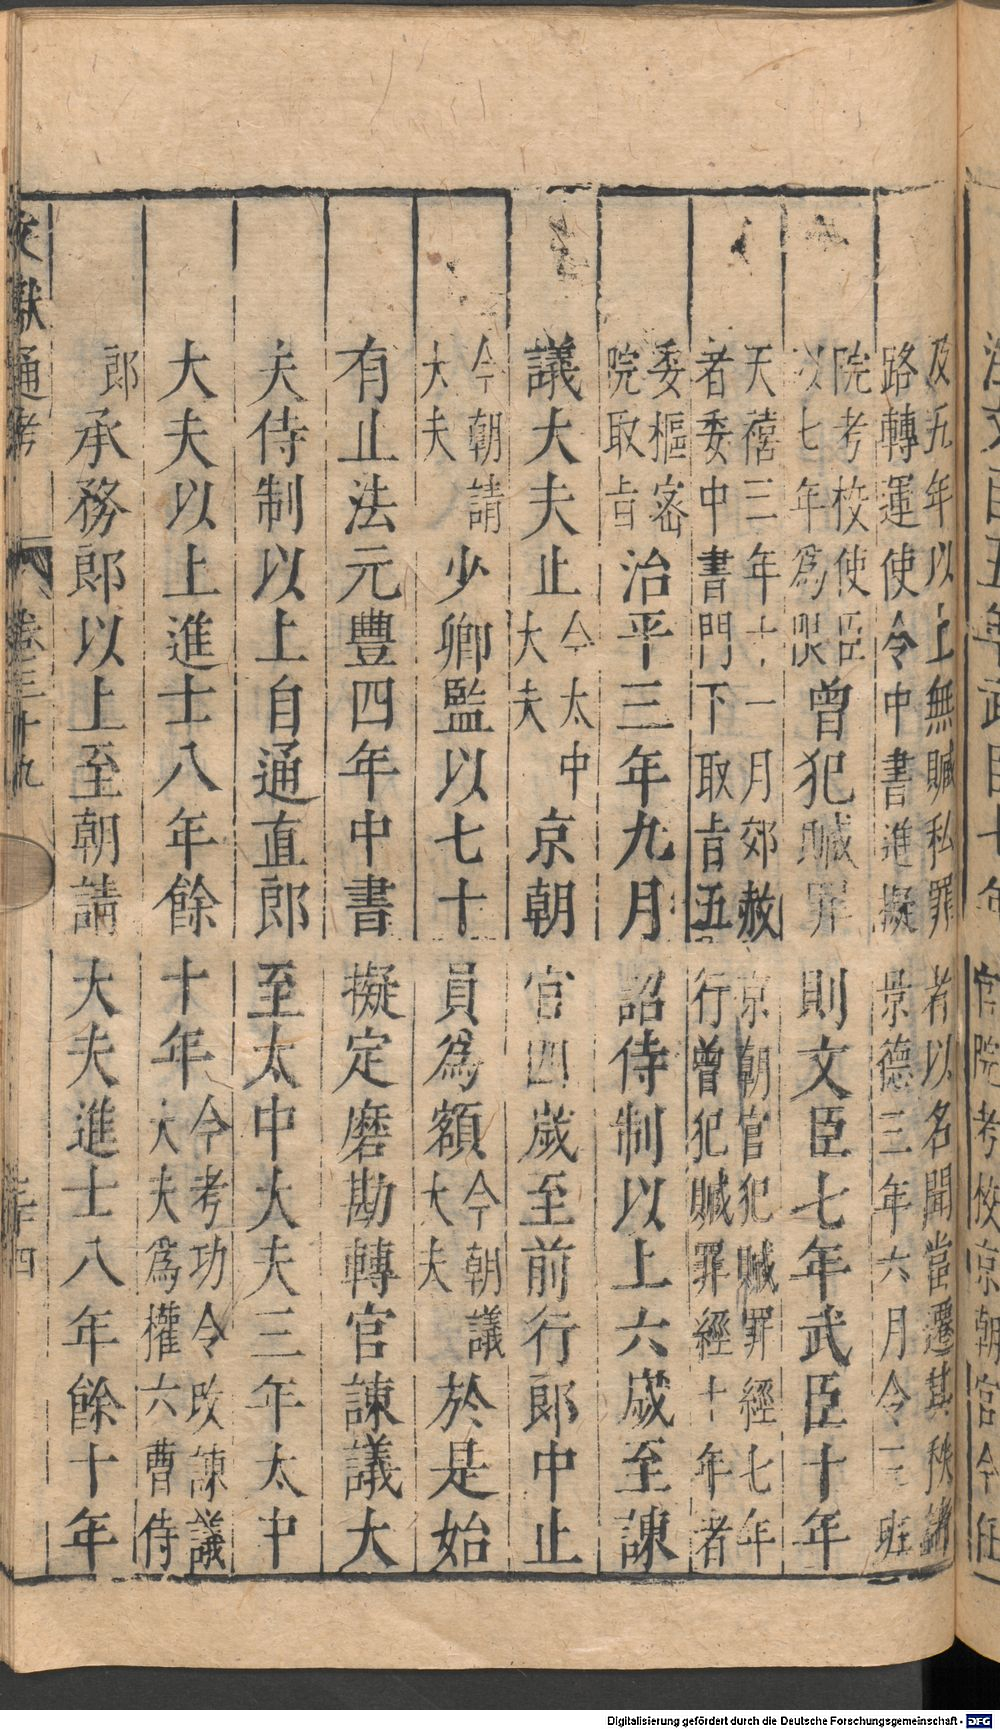 文臣五年武臣十年官院考校京朝官今任
及五年以上無贓私罪者以名聞當遷其秩諸
路轉運使令中書進擬景德三年六月令三班
院考校使臣
以七年為限
曾犯贓罪則文臣七年武臣十年
天禧三年十一月郊赦京朝官犯贓罪經七年
者委中書門下取旨五行曾犯贓罪經十年者
委樞密
院取旨
治平三年九月詔侍制以上六歲至諫
議大夫止
今太中
大夫
京朝官四歲至前行郎中止
今朝請
大夫
少卿監以七十員為額
今朝議
大夫
於是始
有止法元豐四年中書擬定磨勘轉官諫議大
夫侍制以上自通直郎至太中大夫三年太中
大夫以上進士八年餘十年
今考功令改諫議
大夫為權六曹侍
郎
承務郎以上至朝請大夫進士八年餘十年
文獻通考 卷三十九 三十四
Digitalisierung gefördert durch die Deutsche Forschungsgemeinschaft - DFG